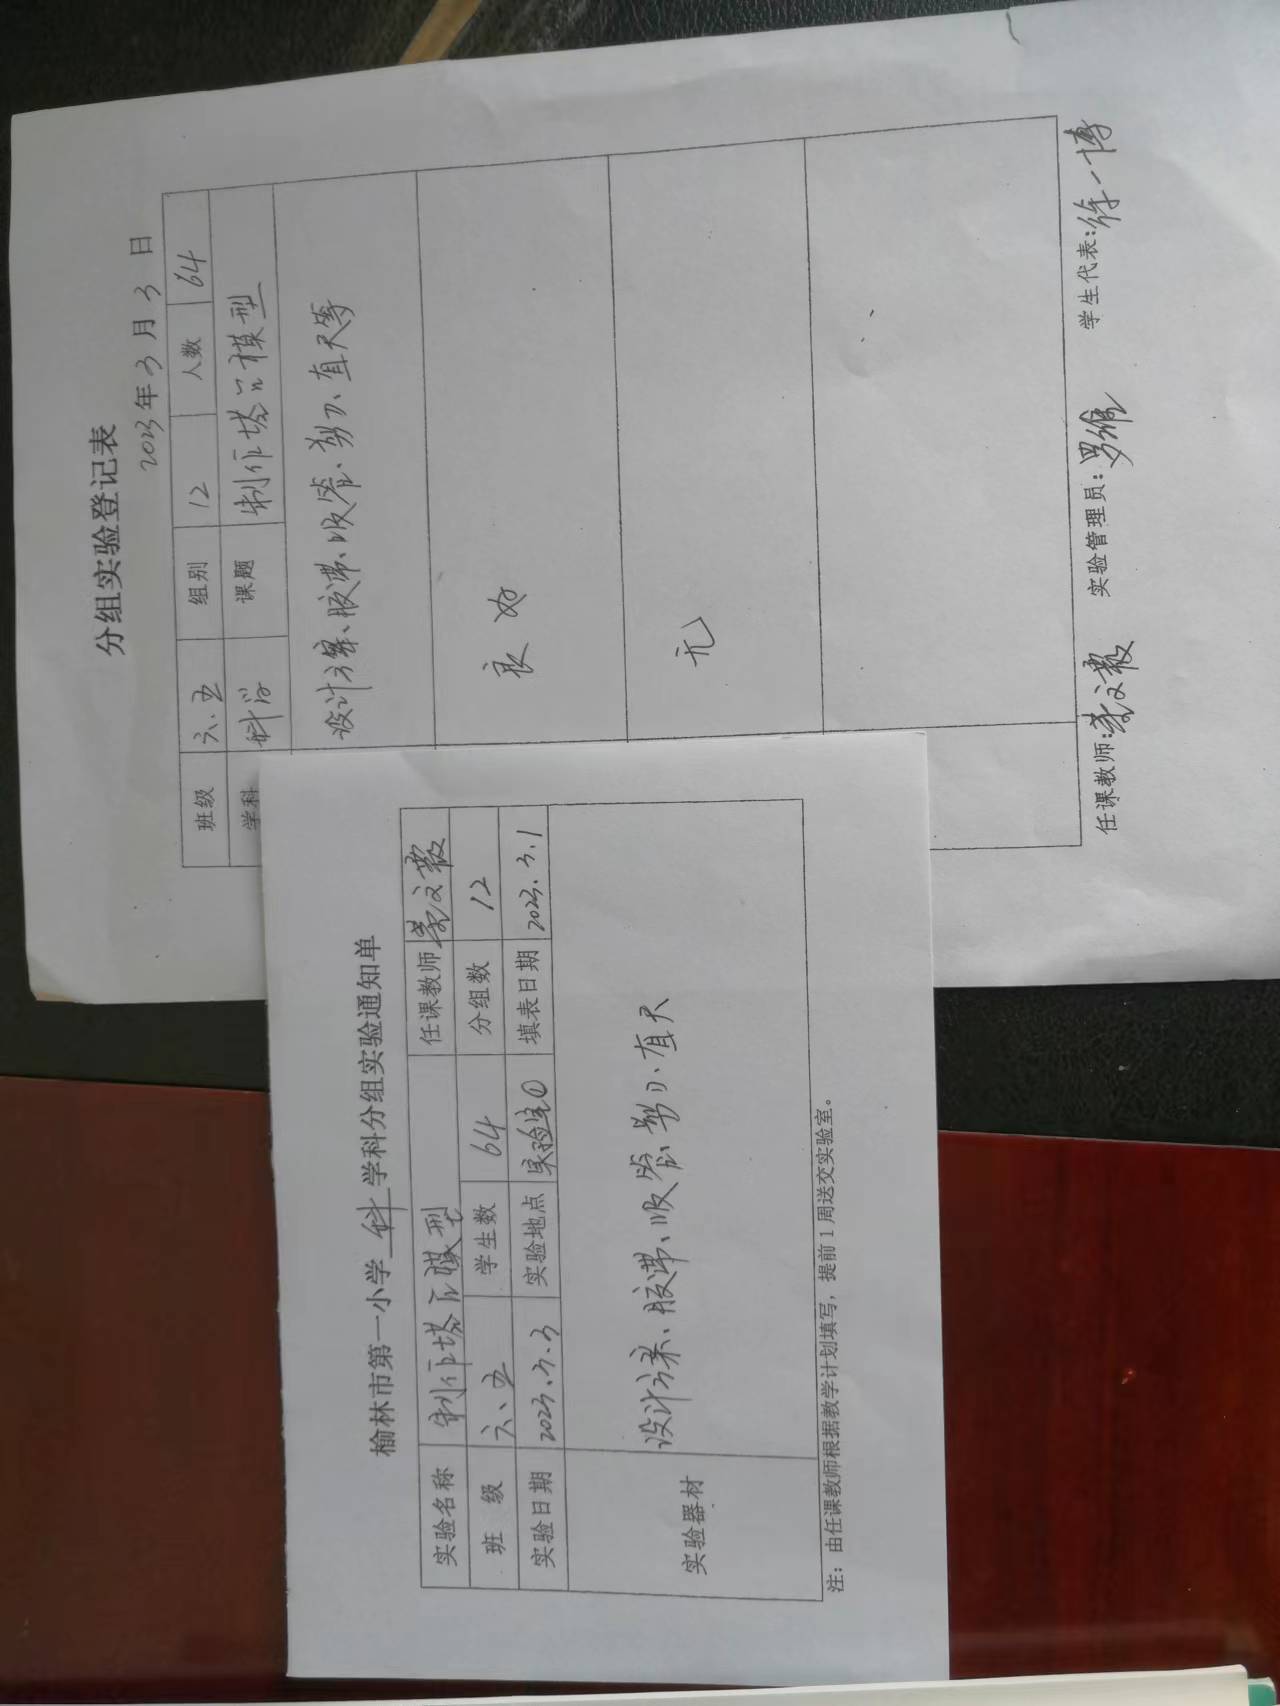 分组实验登记表
2023年3月3日
班级 六、五 组别 12 人数 64
学科 科学 课题 制作塔台模型
设计方案、胶带、吸管、剪刀、直尺等
良好
无
任课教师: 实验管理员: 罗维 学生代表: 徐一博
榆林市第一小学 科 学科分组实验通知单
实验名称 制作塔台模型 任课教师
班 级 六、五 学生数 64 分组数 12
实验日期 2023.3.3 实验地点 实验室① 填表日期 2023.3.1
实验器材 设计方案、胶带、吸管、剪刀、直尺
注: 由任课教师根据教学计划填写, 提前1周送交实验室。